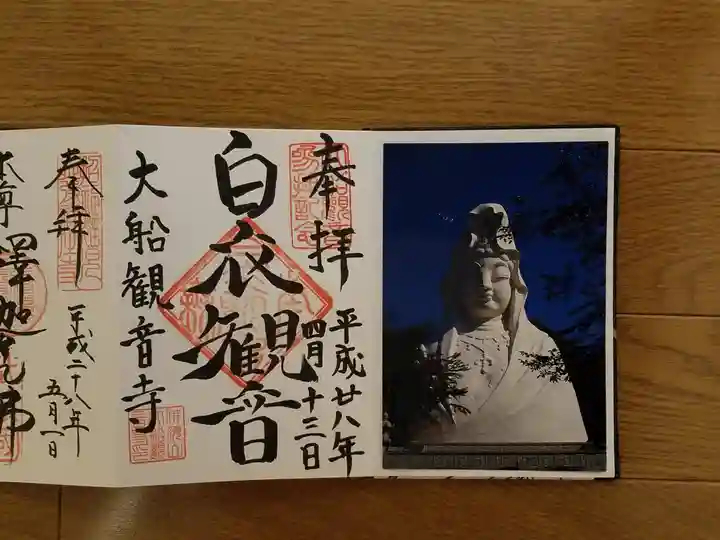 奉拝
平成廿八年
四月十三日
白衣観音
大船観音寺
奉拝
平成二十八年
五月一日
本尊 釋迦牟尼佛